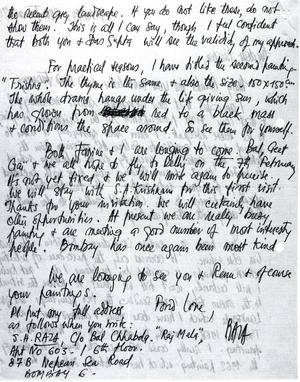 the accent grey landscape. If you do not like them, do not
show them. This is all I can say, though I feel confident
that both you & will see the validity of my approach.
For practical reasons, I have titled the second painting
"Trishna". The theme is the same & also the size. 150 x 150 cm
The white drama hangs under the life giving sun, which
has grown from red to a black mass
& conditions the space around. So see them for yourself.
Both Janine & I are longing to come. Bal, Geet
& we all hope to fly to Delhi on the 7th February
It's not yet fixed & we will write again to precise.
We will stay with S.I. for this first visit.
Thanks for your invitation. We will certainly have
other opportunities. At present we are really busy
& are meeting a good number of most interesting
people. Bombay has once again been most kind
We are longing to see you & Renu & of course
your paintings.
Pl. put my full address
as follows when you write:
Fond love,
S.H. RAZA C/o Bal Chhabda. "Raj Mahl",
Apt No 603. 6th floor.
RAZA
87B Nepean Sea Road
BOMBAY 6